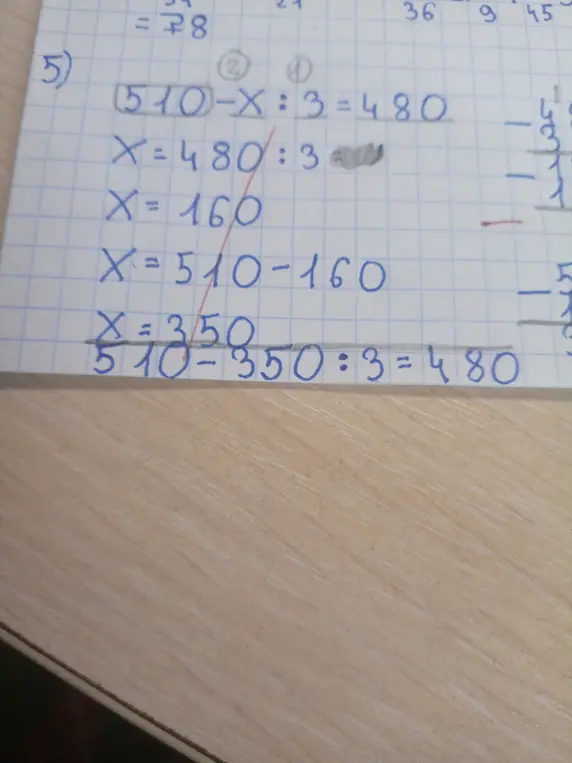 36 9 45
= 78
5)
2 1
510 - x : 3 = 480
x = 480 : 3
x = 160
x = 510 - 160
x = 350
510 - 350 : 3 = 480